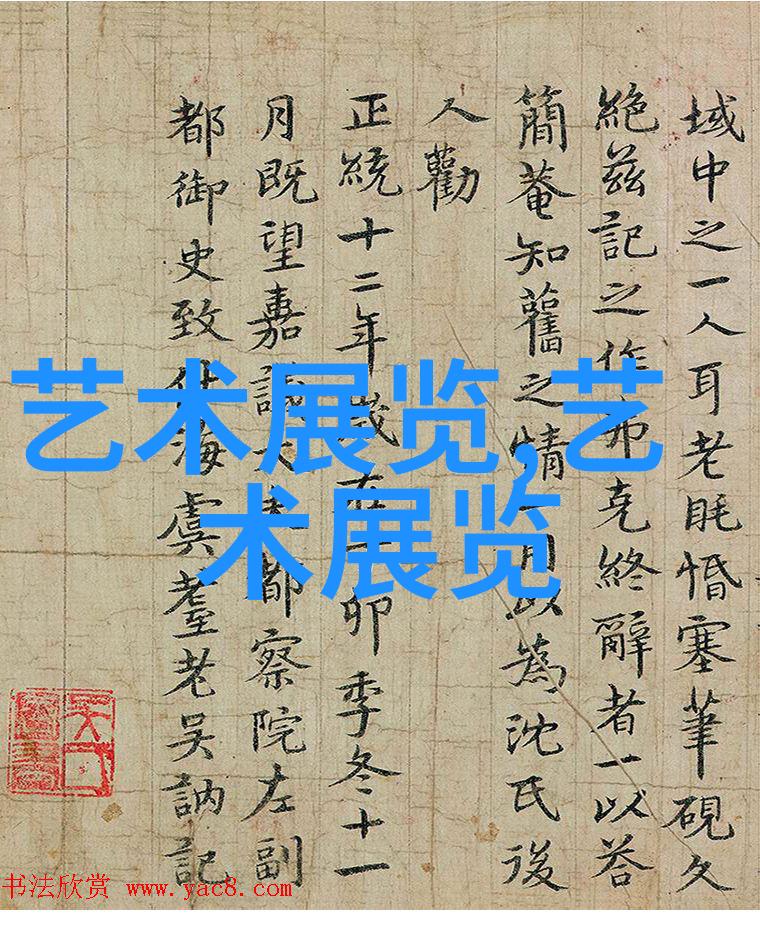 域中之一人耳老眊惛塞筆硯久
絶茲記之作弗克終辭者一以荅
簡菴知舊之情一用以為沈氏後
人勸
正統十二年歲在卯季冬十一
月既望嘉議大夫都察院左副
都御史致仕海虞耋老吳訥記
艺术展览,艺
术展览
书法欣赏 www.yac8.com